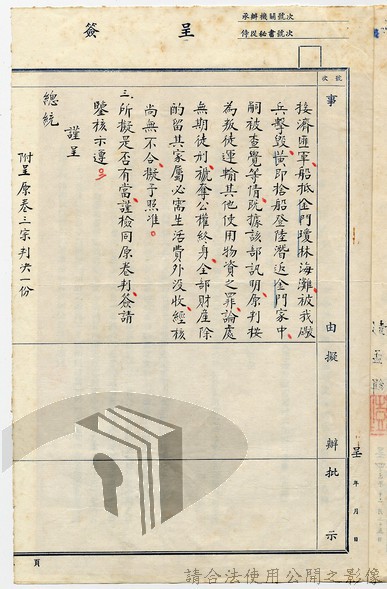 呈簽
承辦機關號次
侍從秘書號次
號次
事由
擬辦
批示
接濟匪軍船抵金門瓊林海灘被我礮
兵擊毀黃即搶船登陸潛返金門家中
嗣被查覺等情既據該部訊明原判按
為叛徒運輸其他使用物資之罪論處
無期徒刑褫奪公權終身全部財產除
酌留其家屬必需生活費外沒收經核
尚無不合擬予照准。
三、所擬是否有當謹檢同原卷判簽請
鑒核示遵
謹呈
總統
附呈原卷三宗判決一份
呈
年
月
日
頁
請合法使用公開之影像